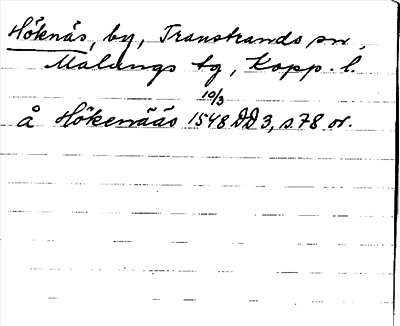 Höknäs, by, Transtrands sn,
Malungs tg, Kopp. l.
10/3
å Hökenääs 1548 DD3, s.78 or.